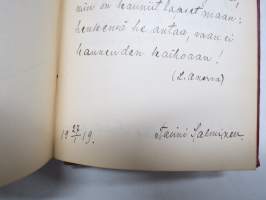 niin on kauniit lapset maan:
henkensä he antaa, vaan ei
kauneuden kaihoaan!
(L. Onerva)
19 27/1 19.
Hanni Salminen.